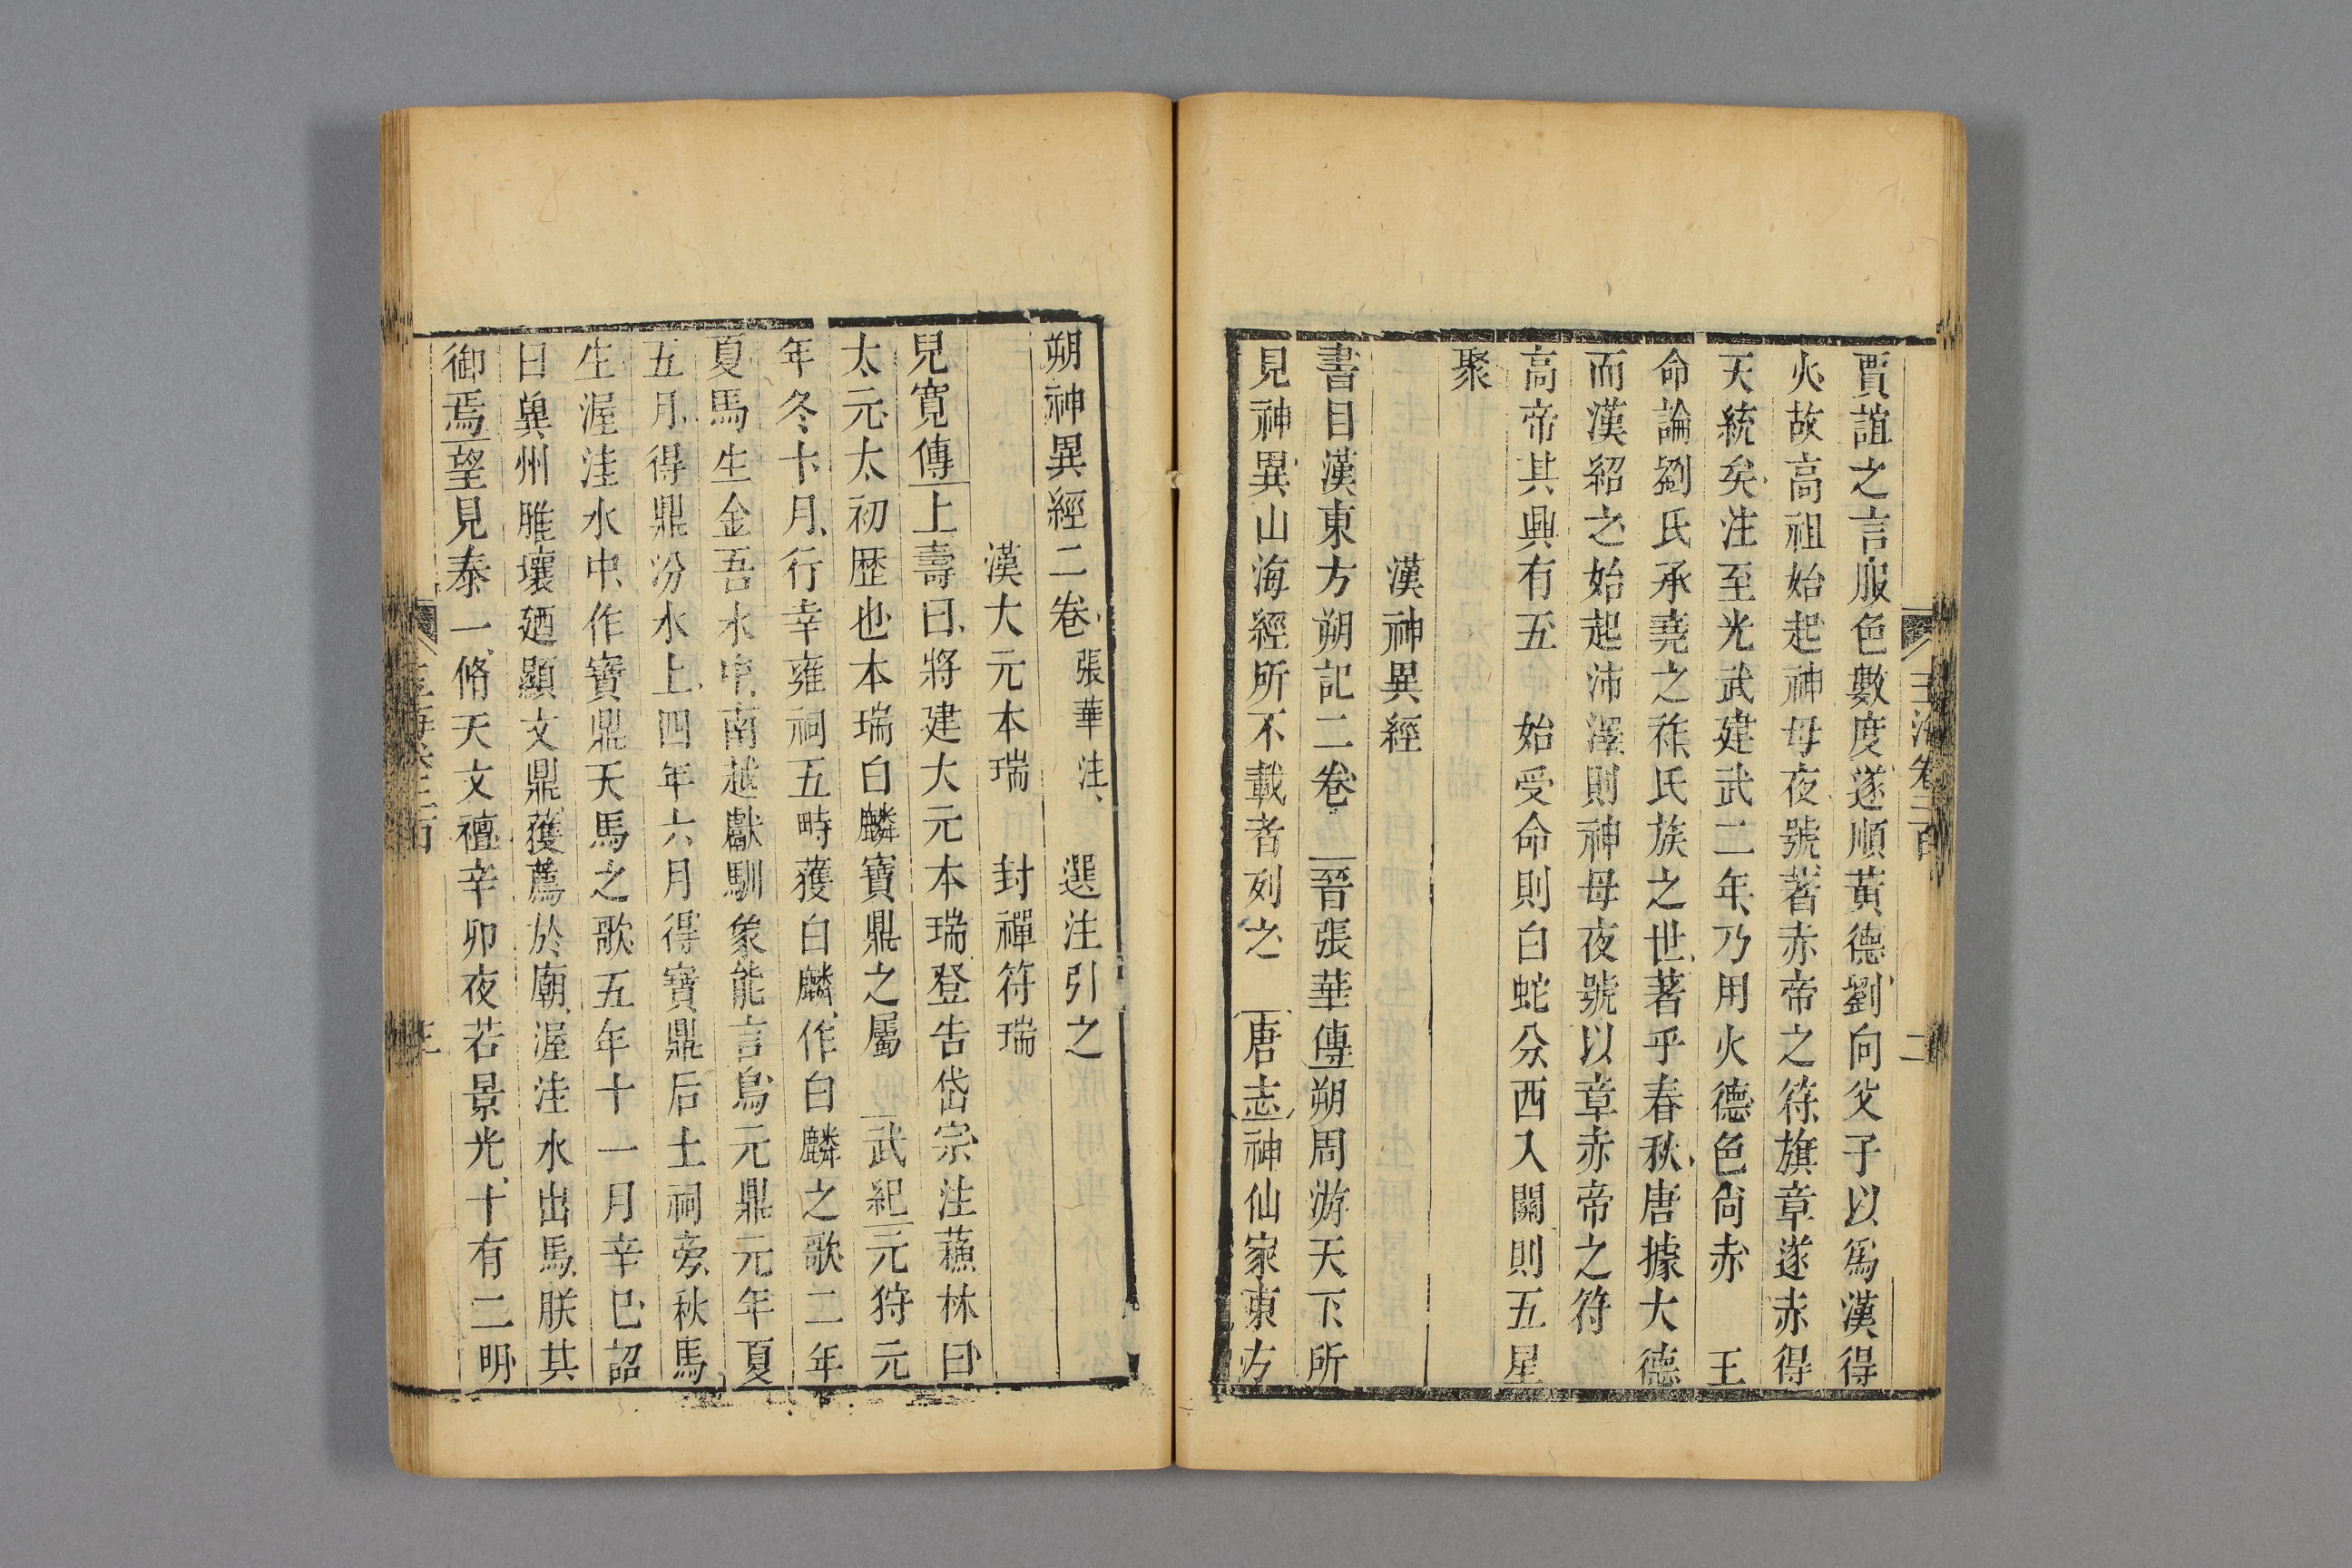 玉海卷二百
二
賈誼之言服色數度遂順黃德劉向父子以爲漢得
火故高祖始起神母夜號著赤帝之符旗章遂赤得
天統矣注至光武建武二年乃用火德色尙赤　王
命論劉氏承堯之祚氏族之世著乎春秋唐據大德
而漢紹之始起沛澤則神母夜號以章赤帝之符
高帝其興有五　始受命則白蛇分西入關則五星
聚
漢神異經
書目漢東方朔記二卷　晉張華傳朔周游天下所
見神異山海經所不載者列之　唐志神仙家東方
朔神異經二卷張華注　選注引之
漢大元本瑞　封禪符瑞
兒寬傳上壽曰將建大元本瑞登告岱宗注蘇林曰
太元太初歷也本瑞白麟寶鼎之屬　武紀元狩元
年冬十月行幸雍祠五畤獲白麟作白麟之歌二年
夏馬生金吾水中南越獻馴象能言鳥元鼎元年夏
五月得鼎汾水上四年六月得寶鼎后土祠旁秋馬
生渥洼水中作寶鼎天馬之歌五年十一月辛巳詔
曰兾州脽壤廼顯文鼎獲薦於廟渥洼水出馬朕其
御焉望見泰一脩天文禮辛卯夜若景光十有二明
玉海卷二百
三